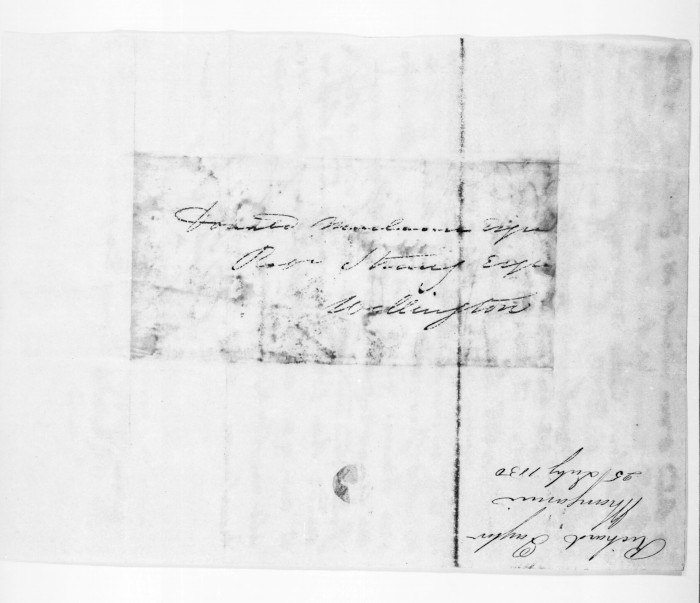 Donald Maclean Esqre
Robt Strang Esqre
Wellington
Richard Taylor
Whanganui
25 July 1850